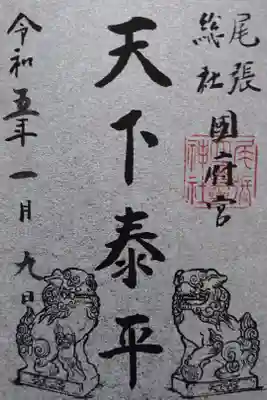 尾張
総社
国府宮
天下泰平
令和五年一月九日